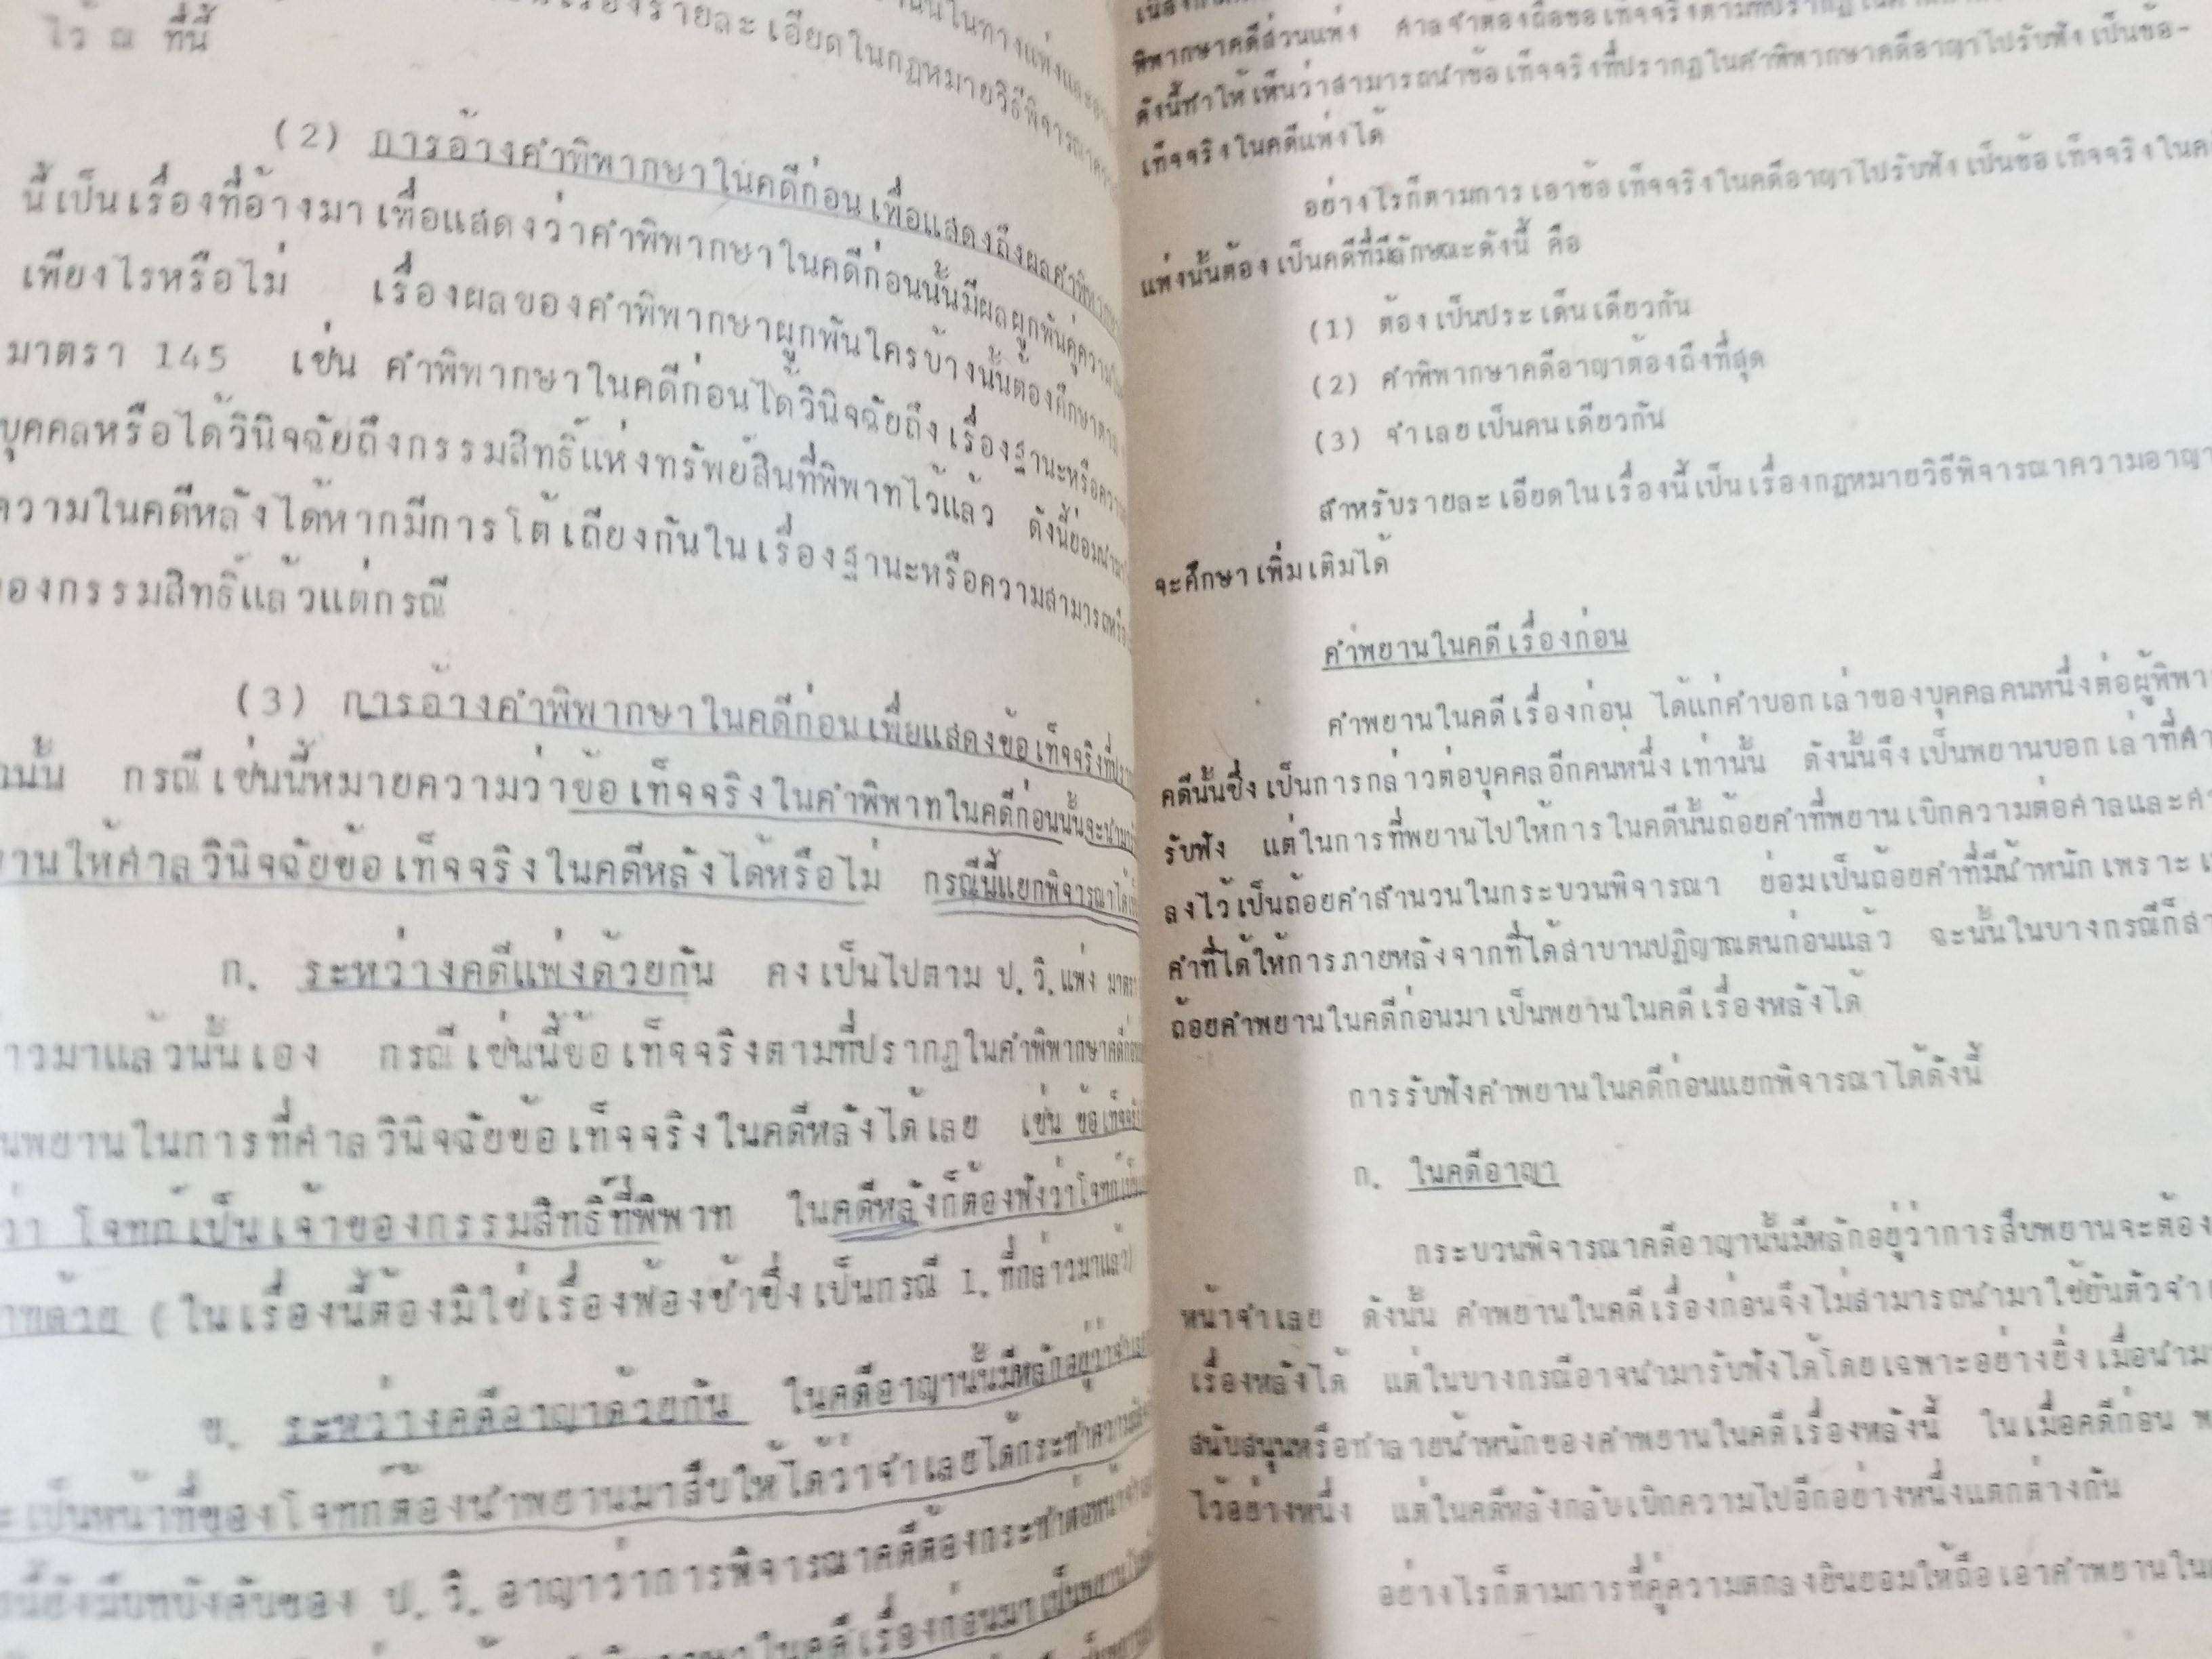 ไว้ ณ ที่นี้
(2) การอ้างคำพิพากษาในคดีก่อน เพื่อแสดงถึงผลคำพิพากษา
นี้เป็นเรื่องที่อ้างมาเพื่อแสดงว่าคำพิพากษาในคดีก่อนนั้นมีผลผูกพันคู่ความ
เพียงไรหรือไม่ เรื่องผลของคำพิพากษาผูกพันใครบ้างนั้นต้องศึกษาตาม
มาตรา 145 เช่น คำพิพากษาในคดีก่อนได้วินิจฉัยถึงเรื่องฐานะหรือ
บุคคลหรือได้วินิจฉัยถึงกรรมสิทธิ์แห่งทรัพย์สินที่พิพาทไว้แล้ว ดังนี้ย่อม
ความในคดีหลังได้หากมีการโต้เถียงกันในเรื่องฐานะหรือความสามารถหรือ
ของกรรมสิทธิ์แล้วแต่กรณี
(3) การอ้างคำพิพากษาในคดีก่อนเพื่อแสดงข้อเท็จจริงที่
นั้น กรณีเช่นนี้หมายความว่าข้อเท็จจริงในคำพิพาทในคดีก่อนนั้นจะ
ให้ศาลวินิจฉัยข้อเท็จจริงในคดีหลังได้หรือไม่ กรณีนี้แยกพิจารณาได้
ก. ระหว่างคดีแพ่งด้วยกัน คงเป็นไปตาม ป.วิ.แพ่ง มาตรา
มาแล้วนั้นเอง กรณีเช่นนี้ข้อเท็จจริงตามที่ปรากฏในคำพิพากษาคดีก่อน
พยานในการที่ศาลวินิจฉัยข้อเท็จจริงในคดีหลังได้เลย เช่น
ว่า โจทก์เป็นเจ้าของกรรมสิทธิ์ที่พิพาท ในคดีหลังก็ต้องฟังว่าโจทก์
ด้วย (ในเรื่องนี้ต้องมิใช่เรื่องฟ้องซ้ำซึ่งเป็นกรณี 1. ที่กล่าวมาแล้ว)
ข. ระหว่างคดีอาญาด้วยกัน ในคดีอาญานั้นมีหลักอยู่ว่า
เป็นหน้าที่ของโจทก์ต้องนำพยานมาสืบให้ได้ว่าจำเลยได้กระทำความผิด
นี้ยังมีบทบังคับของ ป.วิ. อาญาว่าการพิจารณาคดีต้องกระทำต่อหน้า
ในคดีเรื่องก่อนมาเป็นพยาน
พิพากษาคดีส่วนแพ่ง ศาลจำต้องถือข้อเท็จจริงตามที่ปรากฏใน
ดังนี้ทำให้เห็นว่าสามารถนำข้อเท็จจริงที่ปรากฏในคำพิพากษาคดีอาญาไปรับฟังเป็นข้อ-
เท็จจริงในคดีแพ่งได้
อย่างไรก็ตามการเอาข้อเท็จจริงในคดีอาญาไปรับฟังเป็นข้อเท็จจริงใน
แพ่งนั้นต้องเป็นคดีที่มีลักษณะดังนี้ คือ
(1) ต้องเป็นประเด็นเดียวกัน
(2) คำพิพากษาคดีอาญาต้องถึงที่สุด
(3) จำเลยเป็นคนเดียวกัน
สำหรับรายละเอียดในเรื่องนี้เป็นเรื่องกฎหมายวิธีพิจารณาความอาญา
จะศึกษาเพิ่มเติมได้
คำพยานในคดีเรื่องก่อน
คำพยานในคดีเรื่องก่อน ได้แก่คำบอกเล่าของบุคคลคนหนึ่งต่อ
คดีนั้นซึ่งเป็นการกล่าวต่อบุคคลอีกคนหนึ่งเท่านั้น ดังนั้นจึงเป็นพยานบอกเล่าที่
รับฟัง แต่ในการที่พยานไปให้การในคดีนั้นถ้อยคำที่พยานเบิกความต่อศาลและ
ลงไว้เป็นถ้อยคำสำนวนในกระบวนพิจารณา ย่อมเป็นถ้อยคำที่มีน้ำหนักเพราะ
คำที่ได้ให้การภายหลังจากที่ได้สาบานปฏิญาณตนก่อนแล้ว ฉะนั้นในบางกรณีก็
ถ้อยคำพยานในคดีก่อนมาเป็นพยานในคดีเรื่องหลังได้
การรับฟังคำพยานในคดีก่อนแยกพิจารณาได้ดังนี้
ก. ในคดีอาญา
กระบวนพิจารณาคดีอาญานั้นมีหลักอยู่ว่าการสืบพยานจะต้อง
หน้าจำเลย ดังนั้น คำพยานในคดีเรื่องก่อนจึงไม่สามารถนำมาใช้ยันตัว
เรื่องหลังได้ แต่ในบางกรณีอาจนำมารับฟังได้โดยเฉพาะอย่างยิ่งเมื่อ
สนับสนุนหรือทำลายน้ำหนักของคำพยานในคดีเรื่องหลังนี้ ในเมื่อคดีก่อน
ไว้อย่างหนึ่ง แต่ในคดีหลังกลับเบิกความไปอีกอย่างหนึ่งแตกต่างกัน
อย่างไรก็ตามการที่คู่ความตกลงยินยอมให้ถือเอาคำพยานใน